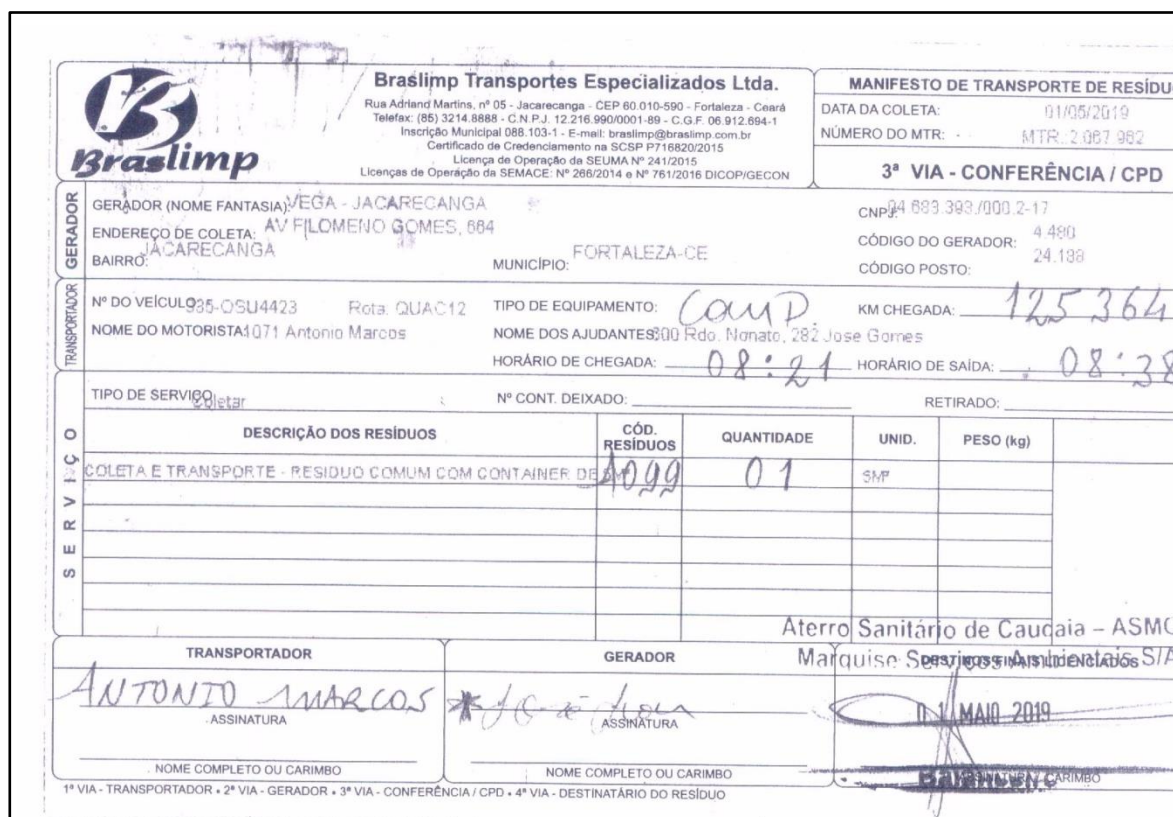 Braslimp
Braslimp Transportes Especializados Ltda.
Rua Adriand Martins, nº 05 - Jacarecanga - CEP 60.010-590 - Fortaleza - Ceará
Telefax: (85) 3214.8888 - C.N.P.J. 12.216.990/0001-89 - C.G.F. 06.912.694-1
Inscrição Municipal 088.103-1 - E-mail: braslimp@braslimp.com.br
Certificado de Credenciamento na SCSP P716820/2015
Licença de Operação da SEUMA Nº 241/2015
Licenças de Operação da SEMACE: Nº 266/2014 e Nº 761/2016 DICOP/GECON
MANIFESTO DE TRANSPORTE DE RESÍDU
DATA DA COLETA: 01/05/2019
NÚMERO DO MTR: MTR.:2.067.962
3ª VIA - CONFERÊNCIA / CPD
GERADOR
GERADOR (NOME FANTASIA): VEGA - JACARECANGA
CNPJ: 04.683.393./000.2-17
ENDEREÇO DE COLETA: AV FILOMENO GOMES, 664
CÓDIGO DO GERADOR: 4.480
BAIRRO: JACARECANGA
MUNICÍPIO: FORTALEZA-CE
CÓDIGO POSTO: 24.198
TRANSPORTADOR
Nº DO VEÍCULO: 985-OSU4423 Rota: QUAC12
TIPO DE EQUIPAMENTO: COMP.
KM CHEGADA: 125364
NOME DO MOTORISTA: 1071 Antonio Marcos
NOME DOS AJUDANTES: 300 Rdo. Nonato, 282 Jose Gomes
HORÁRIO DE CHEGADA: 08:21
HORÁRIO DE SAÍDA: 08:38
SERVIÇO
TIPO DE SERVIÇO: Coletar
Nº CONT. DEIXADO:
RETIRADO:
DESCRIÇÃO DOS RESÍDUOS CÓD. RESÍDUOS QUANTIDADE UNID. PESO (kg)
COLETA E TRANSPORTE - RESIDUO COMUM COM CONTAINER DE 1099 01
Aterro Sanitário de Caucaia – ASMO
Marquise Serviços Ambientais S/A
TRANSPORTADOR
GERADOR
DESTINOS FINAIS LICENCIADOS
ANTONIO MARCOS
ASSINATURA
ASSINATURA
MAIO 2019
NOME COMPLETO OU CARIMBO
NOME COMPLETO OU CARIMBO
ASSINATURA / CARIMBO
1ª VIA - TRANSPORTADOR • 2ª VIA - GERADOR • 3ª VIA - CONFERÊNCIA / CPD • 4ª VIA - DESTINATÁRIO DO RESÍDUO